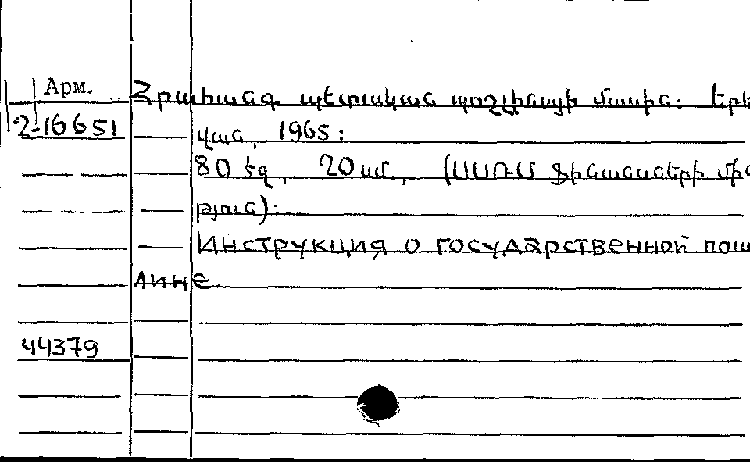 Арм.
Հրահանգ պետական պոշլինայի մասին: Երե
2-16651
վան, 1965:
80 էջ, 20 սմ, (ՍՍՌՄ Ֆինանսների մին
րյուն):
Инструкция о государственной пош
лине.
44379